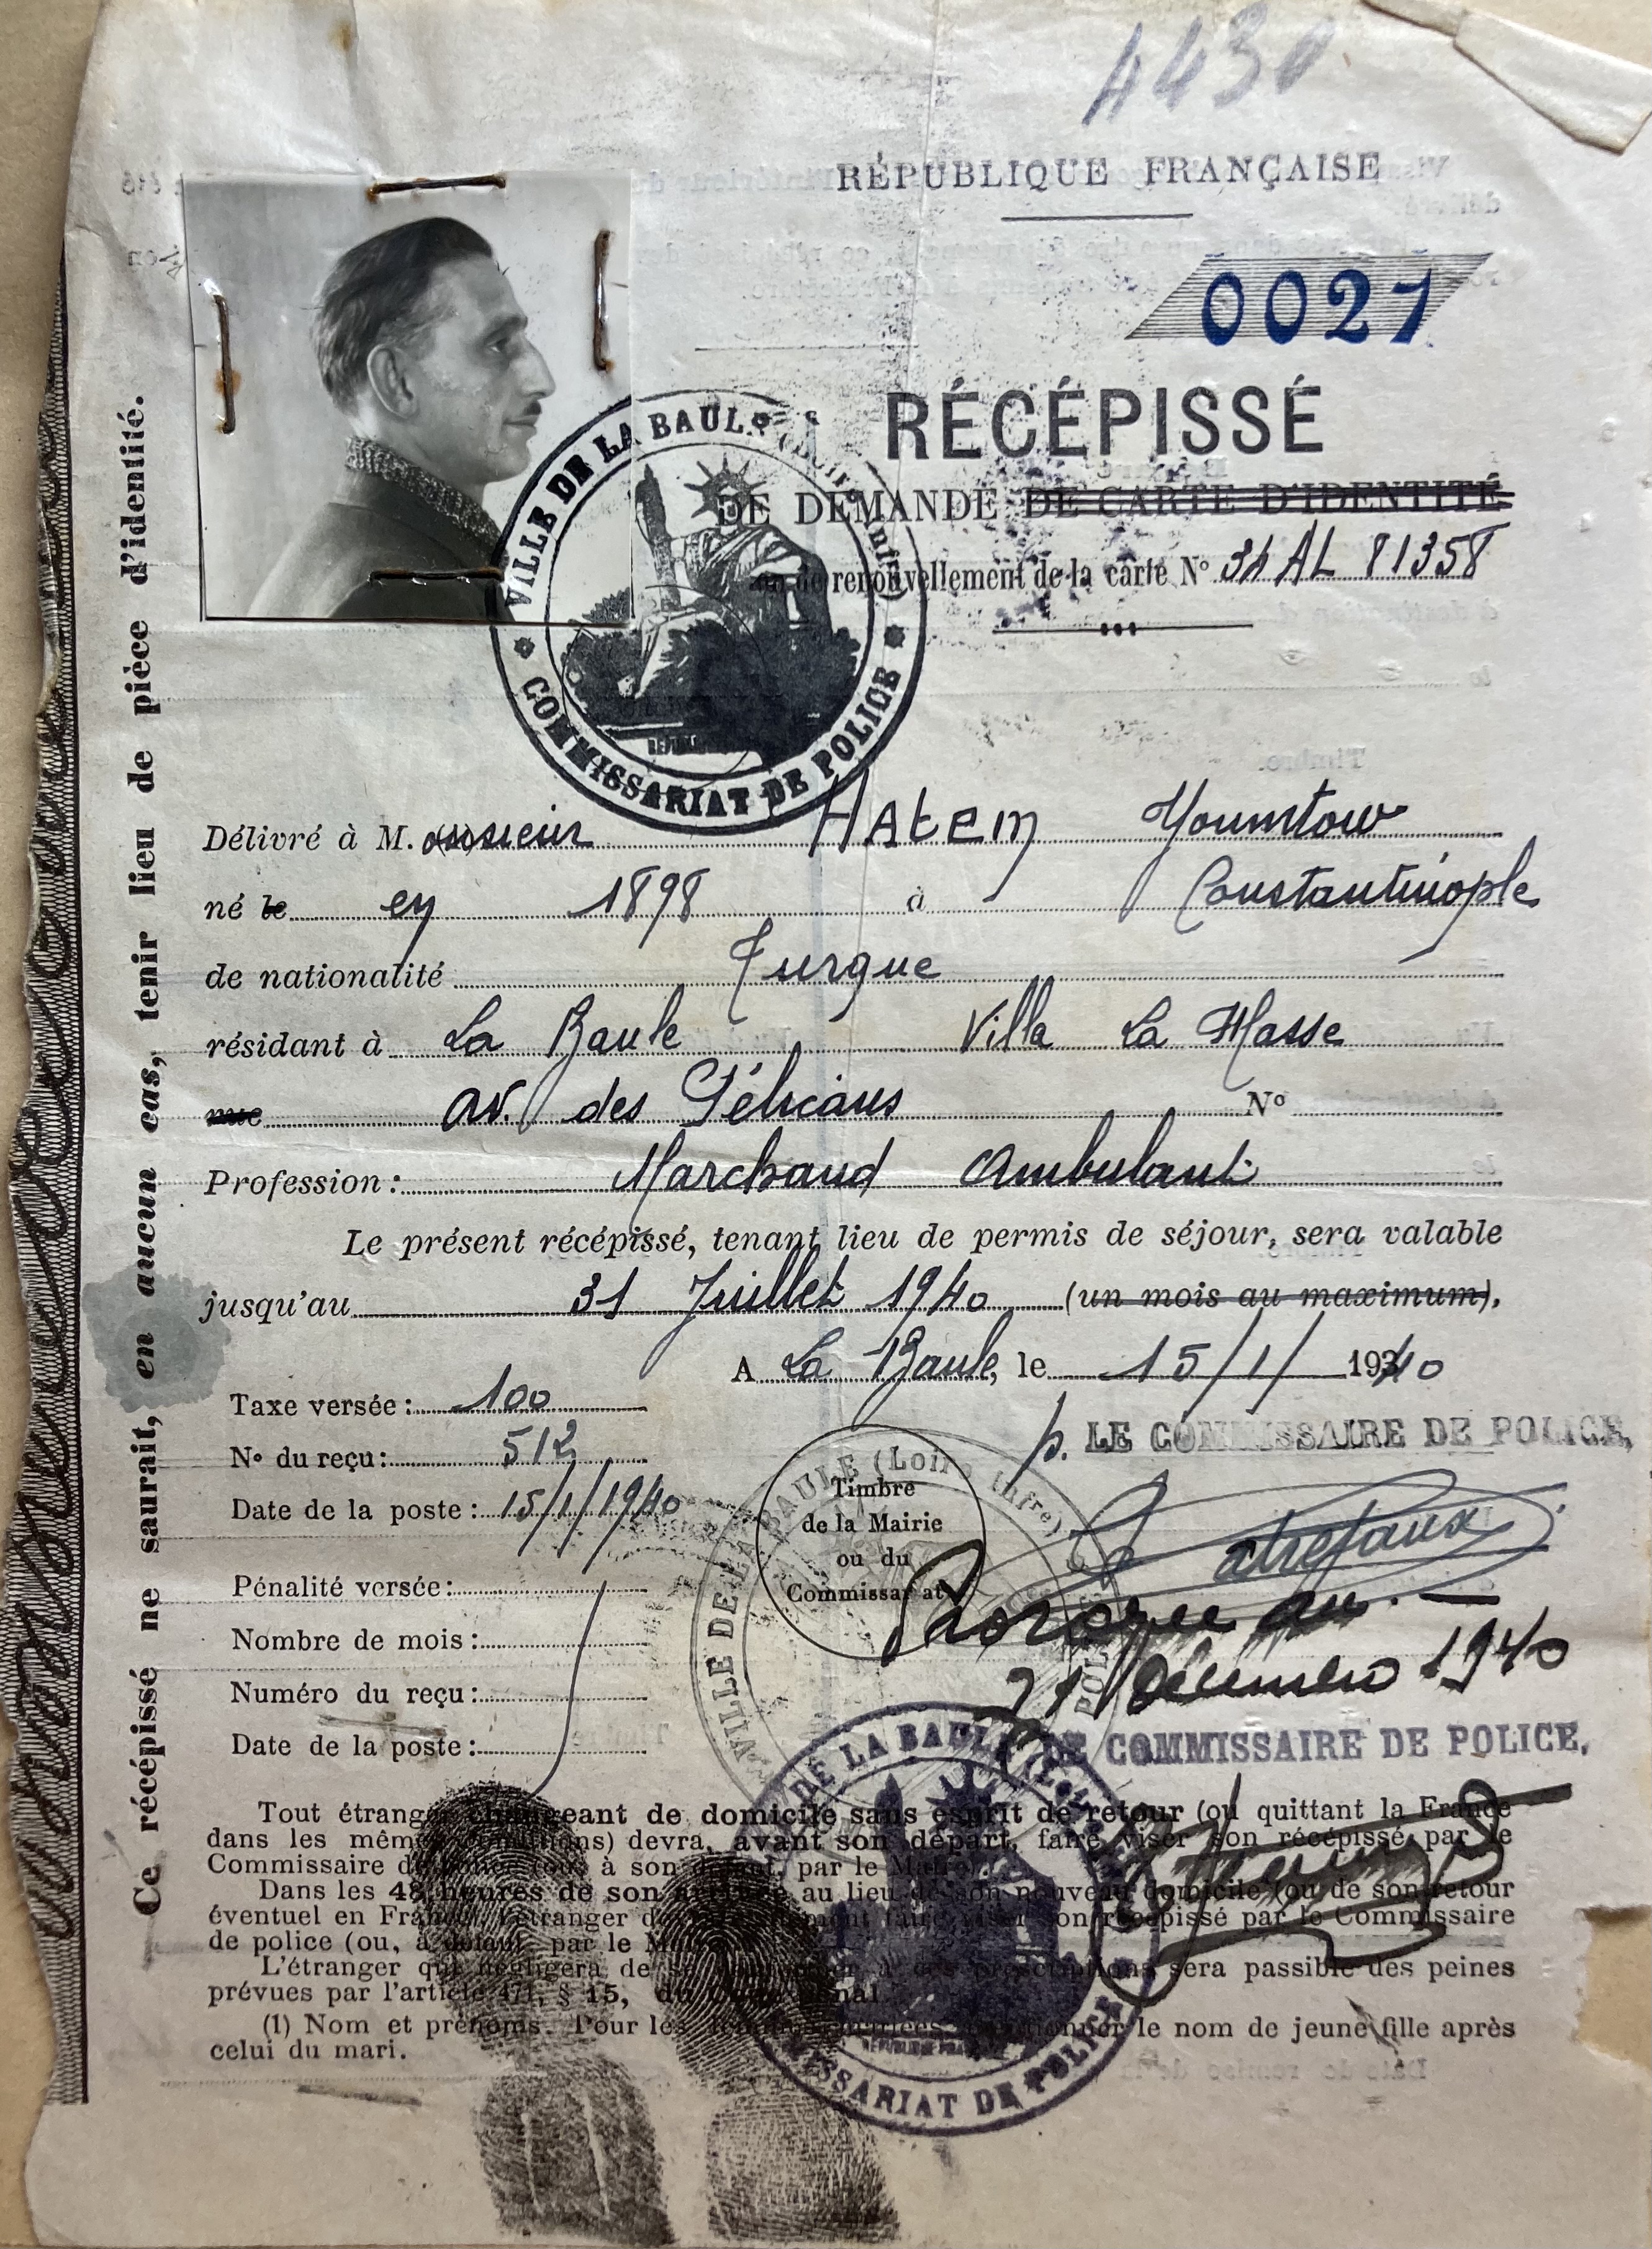 4430
RÉPUBLIQUE FRANÇAISE
0027
RÉCÉPISSÉ
DE DEMANDE DE CARTE D'IDENTITÉ
ou de renouvellement de la carte N° 34 AL 81358
VILLE DE LA BAULE (Loire Infre)
COMMISSARIAT DE POLICE
Délivré à M.onsieur HAtEm Youmtow
né le en 1898 à Constantinople
de nationalité Turque
résidant à La Baule Villa La Masse
rue av. des Pélicans N°
Profession: Marchand Ambulant
Le présent récépissé, tenant lieu de permis de séjour, sera valable
jusqu'au 31 Juillet 1940 (un mois au maximum).
A La Baule, le 15/1/ 1940
Taxe versée: 100
N° du reçu: 512
Date de la poste: 15/1/1940
Pénalité versée:
Nombre de mois:
Numéro du reçu:
Date de la poste:
p. LE COMMISSAIRE DE POLICE,
Timbre
de la Mairie
ou du
Commissariat
VILLE DE LA BAULE (Loire Infre)
Prorogée au. —
31 Décembre 1940
LE COMMISSAIRE DE POLICE,
DE LA BAULE
COMMISSARIAT DE POLICE
Tout étranger changeant de domicile sans esprit de retour (ou quittant la France
dans les mêmes conditions) devra, avant son départ, faire viser son récépissé par le
Commissaire de police (ou, à son défaut, par le Maire).
Dans les 48 heures de son arrivée au lieu de son nouveau domicile (ou de son retour
éventuel en France), l'étranger devra également faire viser son récépissé par le Commissaire
de police (ou, à défaut, par le Maire).
L'étranger qui négligera de se conformer à ces prescriptions sera passible des peines
prévues par l'article 471, § 15, du Code pénal.
(1) Nom et prénoms. Pour les femmes mariées, mentionner le nom de jeune fille après
celui du mari.
Ce récépissé ne saurait, en aucun cas, tenir lieu de pièce d'identité.